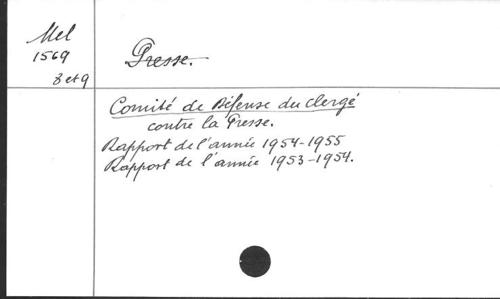 Mel
1569
8 et 9
Presse.
Comité de Défense du Clergé
contre la Presse.
Rapport de l'année 1954-1955
Rapport de l'année 1953-1954.